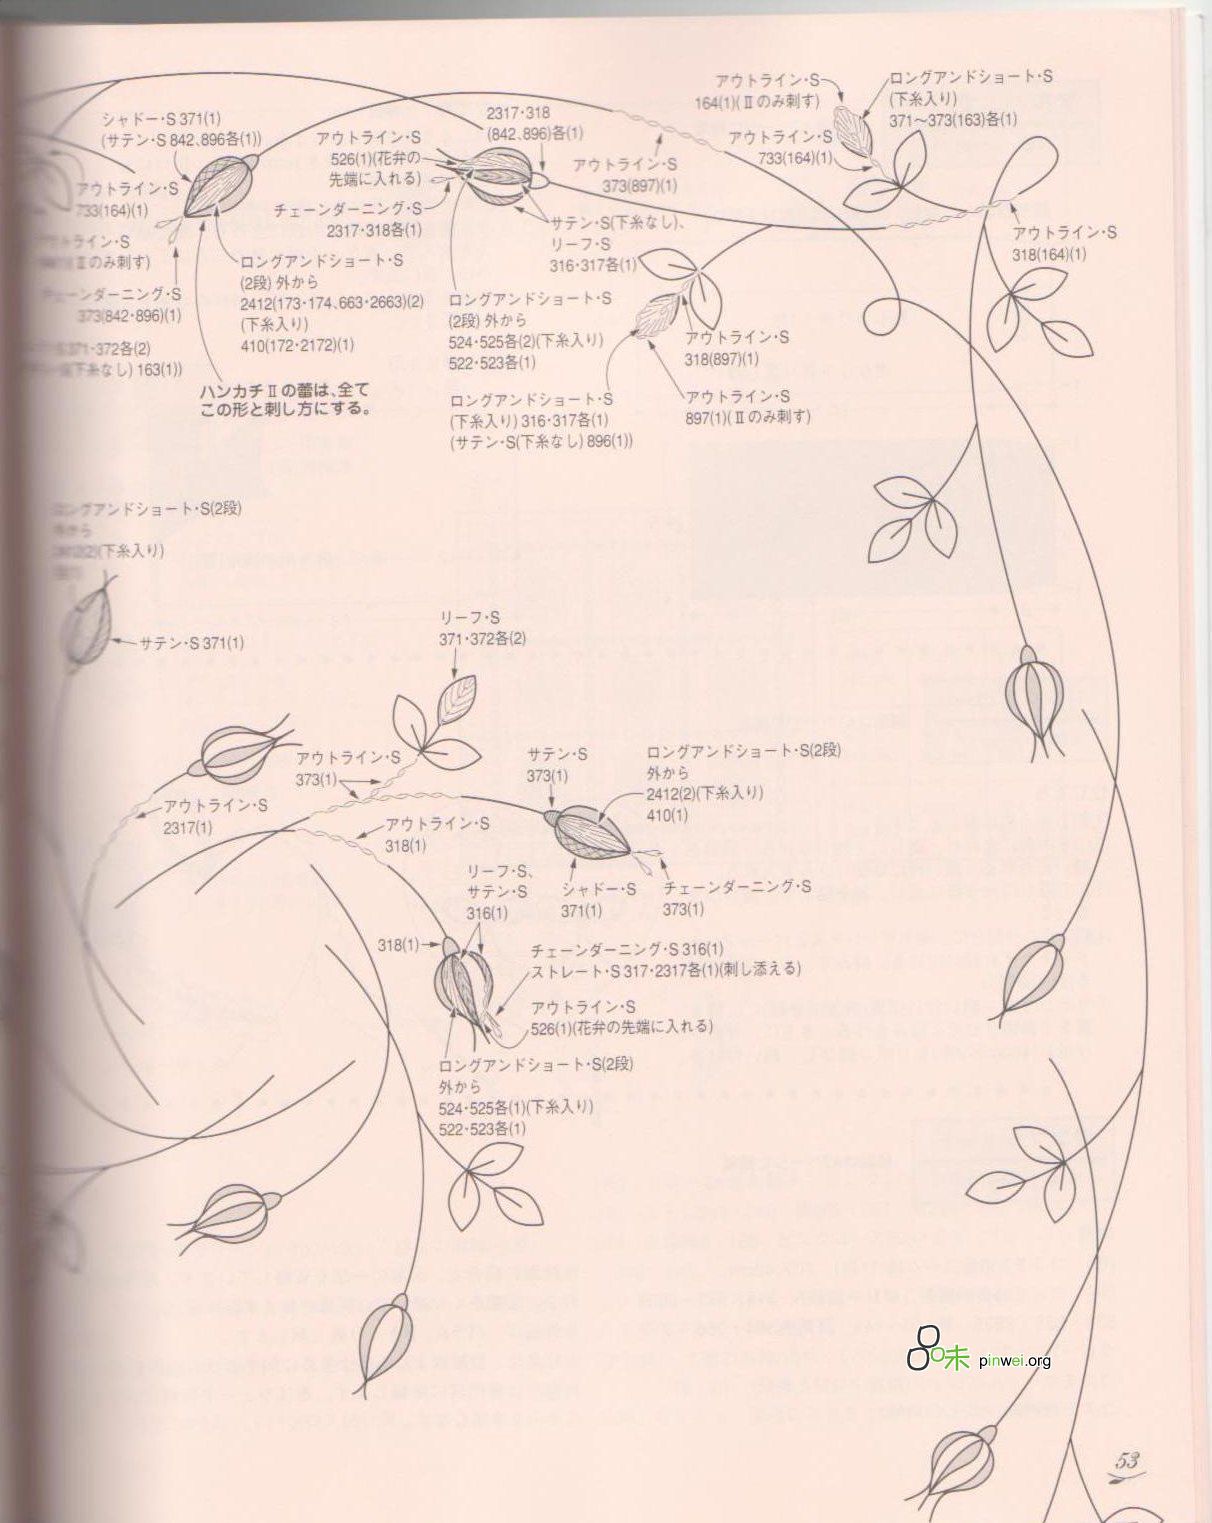 シャドー・S 371(1)
(サテン・S 842、896各(1))
アウトライン・S
733(164)(1)
ライン・S
(Ⅱのみ刺す)
チェーンダーニング・S
373(842・896)(1)
371・372各(2)
(下糸なし) 163(1))
ロングアンドショート・S
(2段) 外から
2412(173・174、663・2663)(2)
(下糸入り)
410(172・2172)(1)
ハンカチⅡの蕾は、全て
この形と刺し方にする。
アウトライン・S
526(1)(花弁の
先端に入れる)
チェーンダーニング・S
2317・318各(1)
2317・318
(842、896)各(1)
アウトライン・S
373(897)(1)
サテン・S(下糸なし)、
リーフ・S
316・317各(1)
ロングアンドショート・S
(2段) 外から
524・525各(2)(下糸入り)
522・523各(1)
ロングアンドショート・S
(下糸入り) 316・317各(1)
(サテン・S(下糸なし) 896(1))
アウトライン・S
318(897)(1)
アウトライン・S
897(1)(Ⅱのみ刺す)
アウトライン・S
164(1)(Ⅱのみ刺す)
アウトライン・S
733(164)(1)
ロングアンドショート・S
(下糸入り)
371〜373(163)各(1)
アウトライン・S
318(164)(1)
ロングアンドショート・S(2段)
外から
(2)(下糸入り)
サテン・S 371(1)
リーフ・S
371・372各(2)
アウトライン・S
373(1)
アウトライン・S
2317(1)
アウトライン・S
318(1)
サテン・S
373(1)
ロングアンドショート・S(2段)
外から
2412(2)(下糸入り)
410(1)
リーフ・S、
サテン・S
316(1)
シャドー・S
371(1)
チェーンダーニング・S
373(1)
318(1)
チェーンダーニング・S 316(1)
ストレート・S 317・2317各(1)(刺し添える)
アウトライン・S
526(1)(花弁の先端に入れる)
ロングアンドショート・S(2段)
外から
524・525各(1)(下糸入り)
522・523各(1)
味 pinwei.org
53